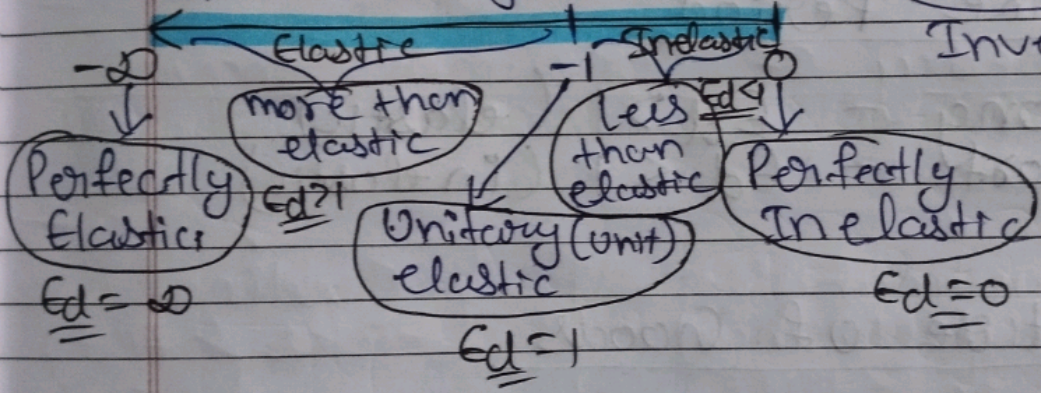 Elastic
Inelastic
Inv
-∞
-1
0
more than
elastic
Ed>1
less
than
elastic
Ed<1
Perfectly
Elastic
Ed = ∞
Unitary (unit)
elastic
Ed = 1
Perfectly
Inelastic
Ed = 0